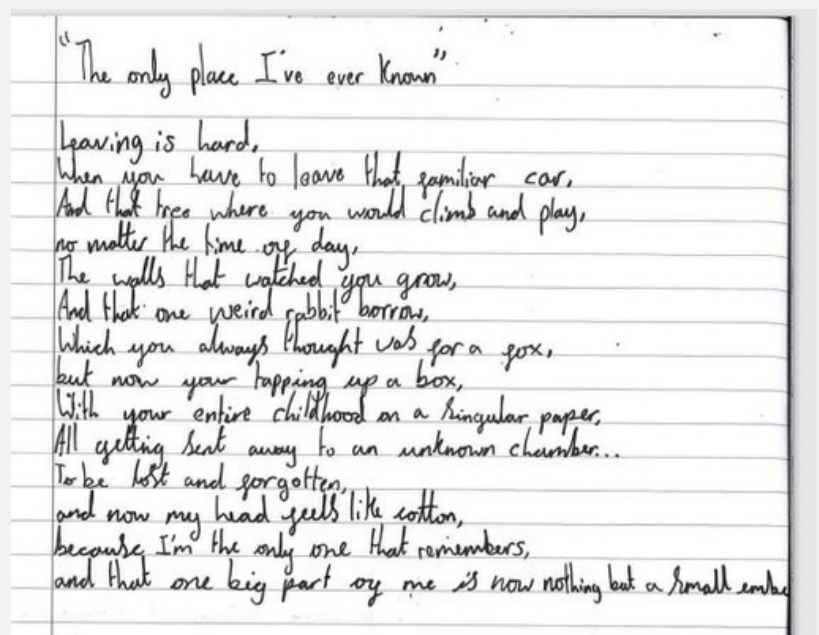 "The only place I've ever known"
Leaving is hard.
When you have to leave that familiar car,
And that tree where you would climb and play,
no matter the time of day,
The walls that watched you grow,
And that one weird rabbit borrow,
Which you always thought was for a fox,
but now your tapping up a box,
With your entire childhood on a singular paper,
All getting sent away to an unknown chamber...
To be lost and forgotten,
and now my head feels like cotton,
because I'm the only one that remembers,
and that one big part of me is now nothing but a small embe